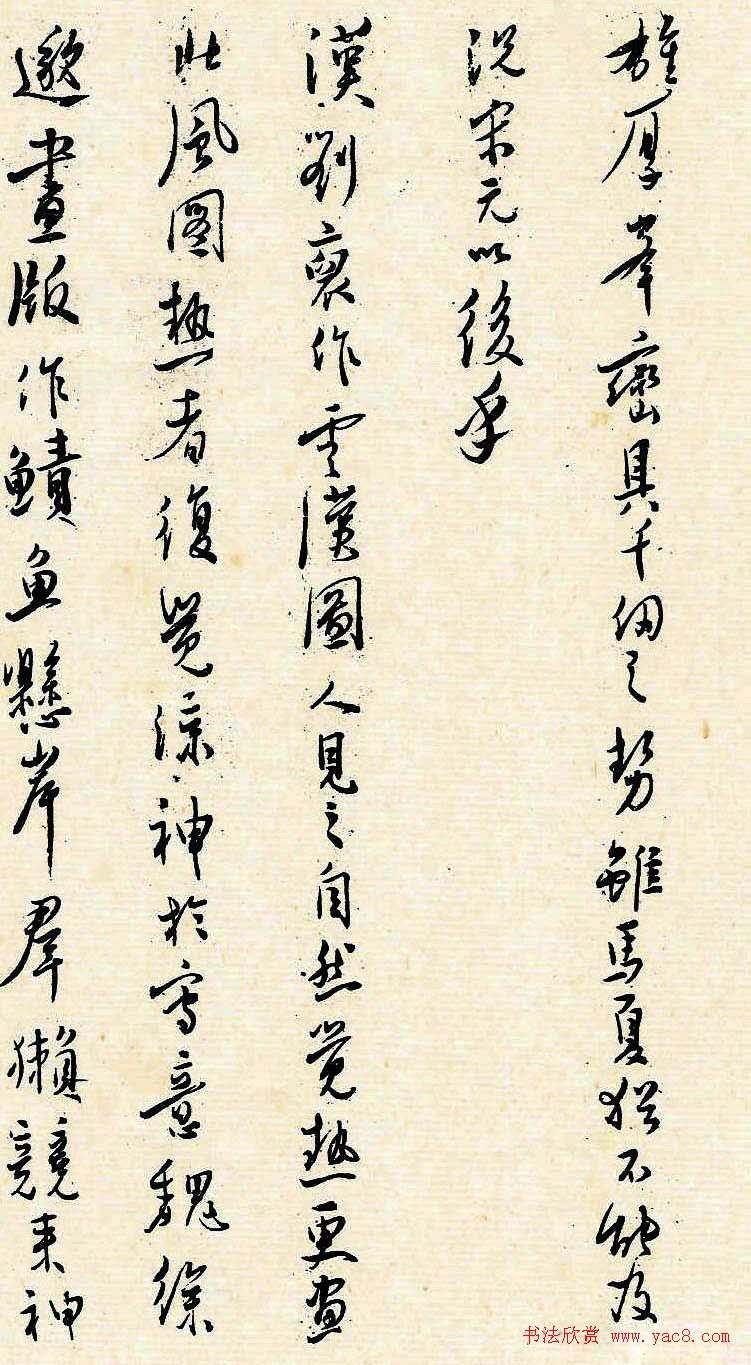 雄厚峯巒具千仞之勢雖馬夏猶不能及
況宋元以後乎
漢劉褒作雲漢圖人見之自然覺熱更畫
北風圖熱者復覺涼神於寫意魏徐
邈畫版作鱭魚懸岸羣獺競來神
书法欣赏 www.yac8.com